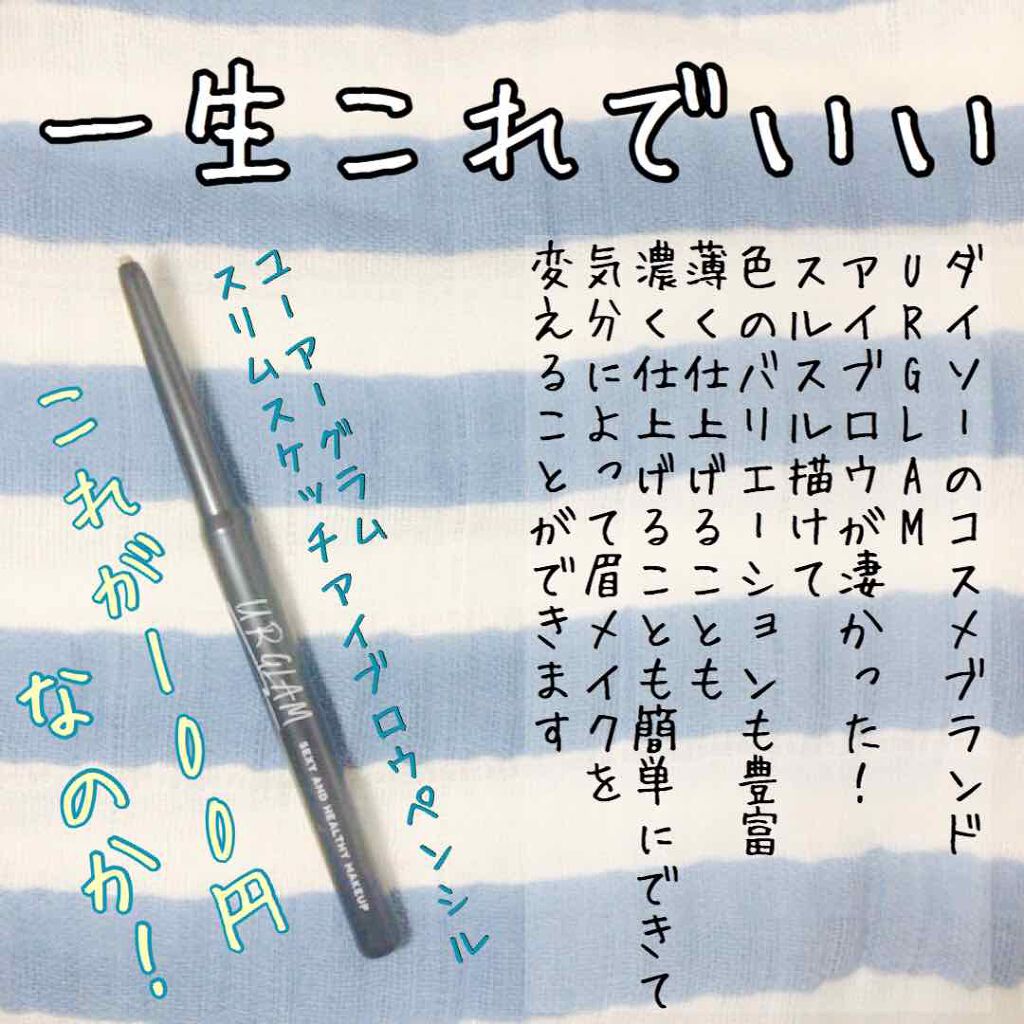 一生これでいい
ダイソーのコスメブランド
URGLAM
アイブロウが凄かった!
スルスル描けて
色のバリエーションも豊富
薄く仕上げることも
濃く仕上げることも簡単にできて
気分によって眉メイクを
変えることができます
ユーアーグラム
スリムスケッチアイブロウペンシル
URGLAM
SEXY AND HEALTHY MAKEUP
これが100円
なのか!